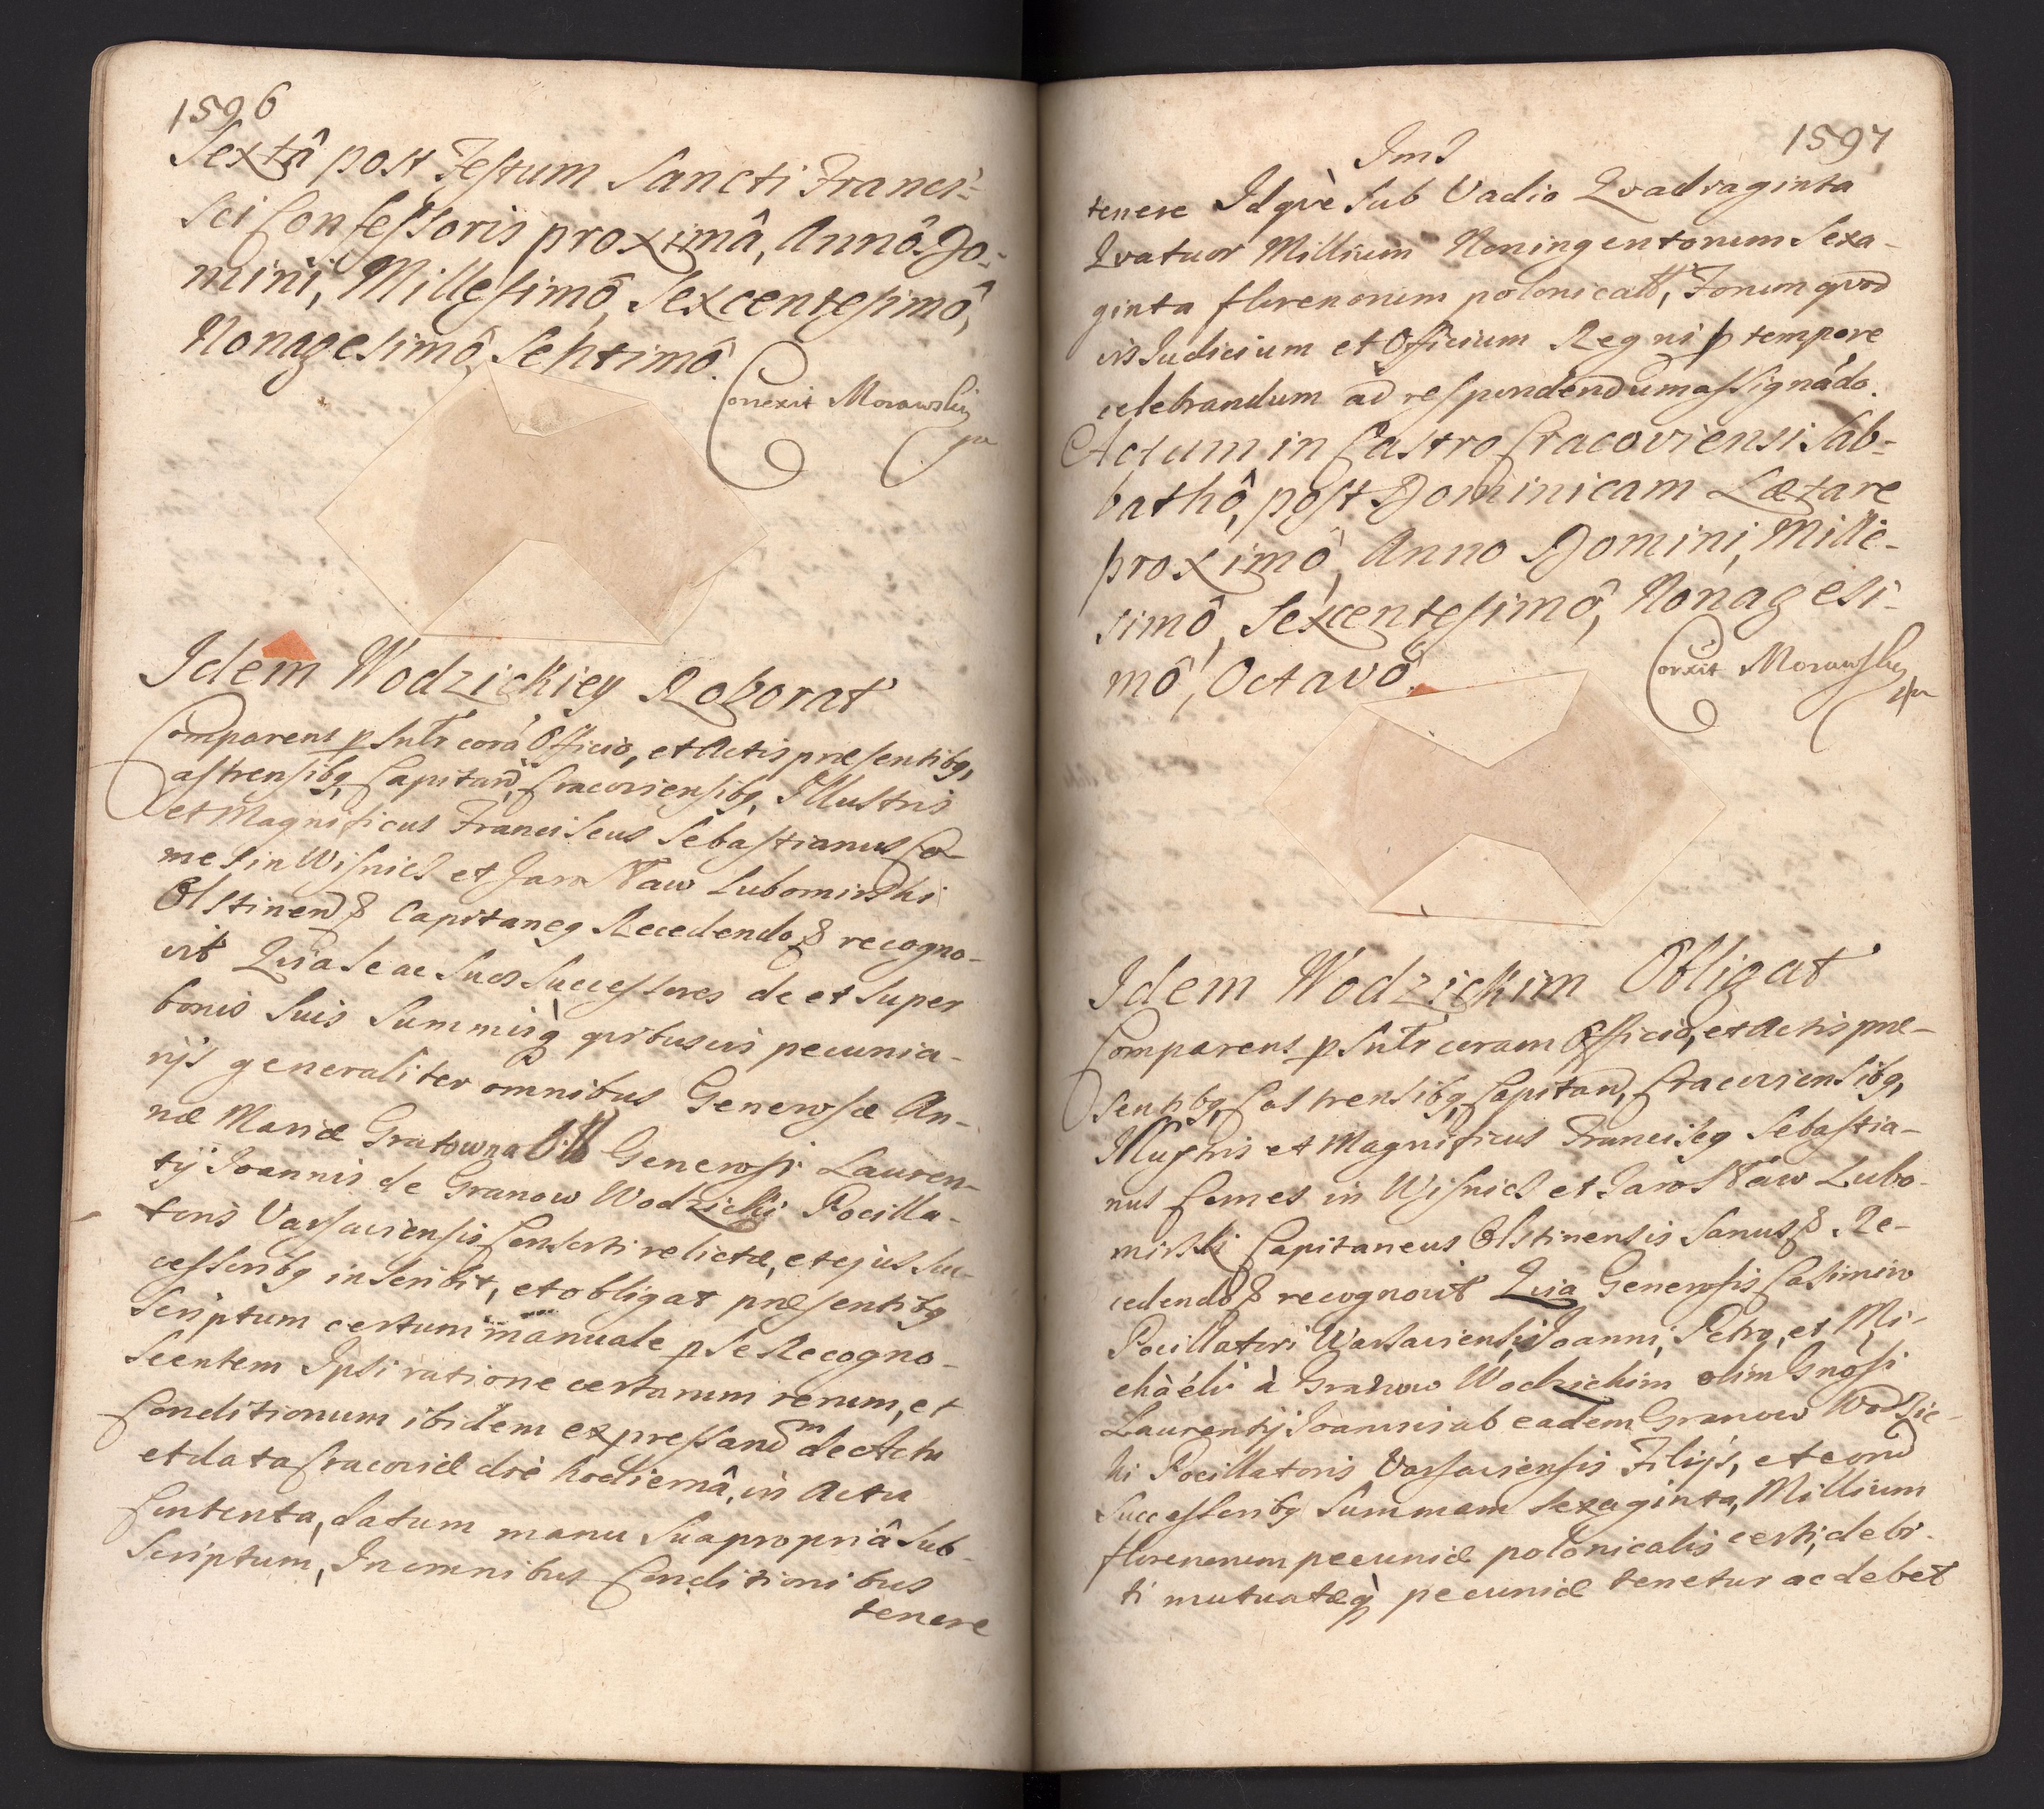 1596
Sextâ post Festum Sancti Franci-
sci Confessoris proximâ, Annô Do-
mini, Millesimô, Sexcentesimô,
Nonagesimô, Septimô.
Correxit Morawsky
Idem Wodzickiey Roborat
Comparens psntr corá Officio, et Actis præsentibq,
Castrensibq, Capitand, Cracoviensibq, Illustris
et Magnificus Franciscus Sebastianus Co-
mes in Wisnicz et Jarosław Lubomirski
Olstinen & Capitaneq Recedendo & recogno-
vit Quia se ac suos Successores de et super
bonis suis Summisq quibusvis pecunia-
rijs generaliter omnibus Generosæ An-
næ Mariæ Gratowna Generosi Lauren-
tij Joannis de Granow Wodzicki Pocilla-
toris Varsaviensis Consorti relictæ, et ejus Suc-
cessoribq inscribit, et obligat præsentibq
Scriptum certum manuale p se Recogno-
scentem Ipsi ratione certarum rerum, et
Conditionum ibidem expressand de Actu
et data Cracoviæ die hodiernâ, in Actu
Contenta, datum manu sua propriâ sub-
scriptum, In omnibus Conditionibus
tenere
1597
tenere Idqvè sub Vadio Qvadraginta
Qvatuor Millium Noningentorum Sexa-
ginta florenorum polonicall, Forum qvod
vis Judicium et Officium Regni p tempore
celebrandum ad respondendum assignádo.
Actum in Castro Cracoviensi Sab-
bathô, post Dominicam Lætare
proximô, Anno Domini, Mille-
simô, Sexcentesimô, Nonagesi-
mô, Octavô.
Correxit Morawsky
Idem Wodzickim Obligat
Comparens psntr coram Officio, et Actis præ-
sentibq, Castrensibq, Capitand, Cracoviensibq,
Illustris et Magnificus Francisq Sebastia-
nus Comes in Wisnicz et Jarosław Lubo-
mirski Capitaneus Olstinensis Sanus & Re-
cedendo & recognovit Quia Generosis Casimiro
Pocillatori Warsaviensi, Joanni, Petro, et Mi-
chàéli à Granow Wodzickim olim Gnosi
Laurentij Joannis ab eadem Granow Wodzic-
ki Pocillatoris Varsaviensis Filijs, et eord
Successoribq Summam Sexaginta, Millium
florenorum pecuniæ polonicalis certi, debi-
ti mutuatæq pecuniæ tenetur ac debet